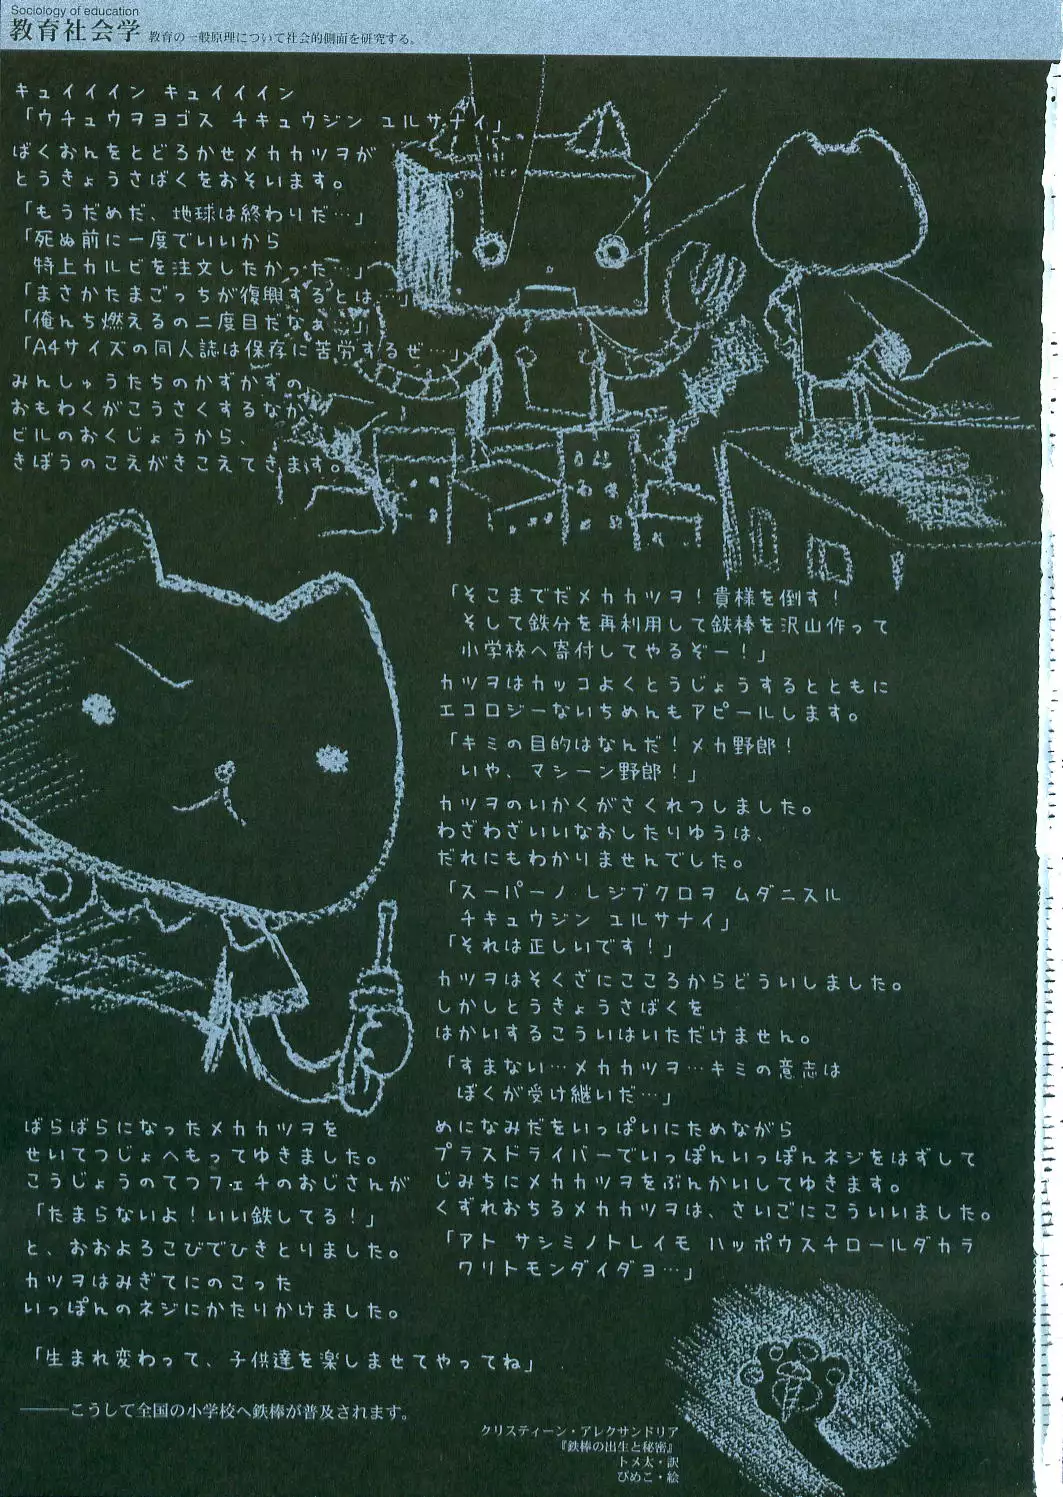 Sociology of education
教育社会学 教育の一般原理について社会的側面を研究する。
キュイイイン キュイイイン
「ウチュウヲヨゴス チキュウジン ユルサナイ」
ばくおんをとどろかせメカカツヲが
とうきょうさばくをおそいます。
「もうだめだ、地球は終わりだ…」
「死ぬ前に一度でいいから
特上カルビを注文したかった…」
「まさかたまごっちが復興するとは…」
「俺んち燃えるの二度目だなぁ…」
「A4サイズの同人誌は保存に苦労するぜ…」
みんしゅうたちのかずかずの
おもわくがこうさくするなか、
ビルのおくじょうから、
きぼうのこえがきこえてきます。
「そこまでだメカカツヲ！貴様を倒す！
そして鉄分を再利用して鉄棒を沢山作って
小学校へ寄付してやるぞー！」
カツヲはカッコよくとうじょうするとともに
エコロジーないちめんもアピールします。
「キミの目的はなんだ！メカ野郎！
いや、マシーン野郎！」
カツヲのいかくがさくれつしました。
わざわざいいなおしたりゆうは、
だれにもわかりませんでした。
「スーパーノ レジブクロヲ ムダニスル
チキュウジン ユルサナイ」
「それは正しいです！」
カツヲはそくざにこころからどういしました。
しかしとうきょうさばくを
はかいするこういはいただけません。
「すまない…メカカツヲ…キミの意志は
ぼくが受け継いだ…」
めになみだをいっぱいにためながら
プラスドライバーでいっぽんいっぽんネジをはずして
じみちにメカカツヲをぶんかいしてゆきます。
くずれおちるメカカツヲは、さいごにこういいました。
「アト サシミノトレイモ ハッポウスチロールダカラ
ワリトモンダイダヨ…」
ばらばらになったメカカツヲを
せいてつじょへもってゆきました。
こうじょうのてつフェチのおじさんが
「たまらないよ！いい鉄してる！」
と、おおよろこびでひきとりました。
カツヲはみぎてにのこった
いっぽんのネジにかたりかけました。
「生まれ変わって、子供達を楽しませてやってね」
――こうして全国の小学校へ鉄棒が普及されます。
クリスティーン・アレクサンドリア
『鉄棒の出生と秘密』
トメ太・訳
ぴめこ・絵